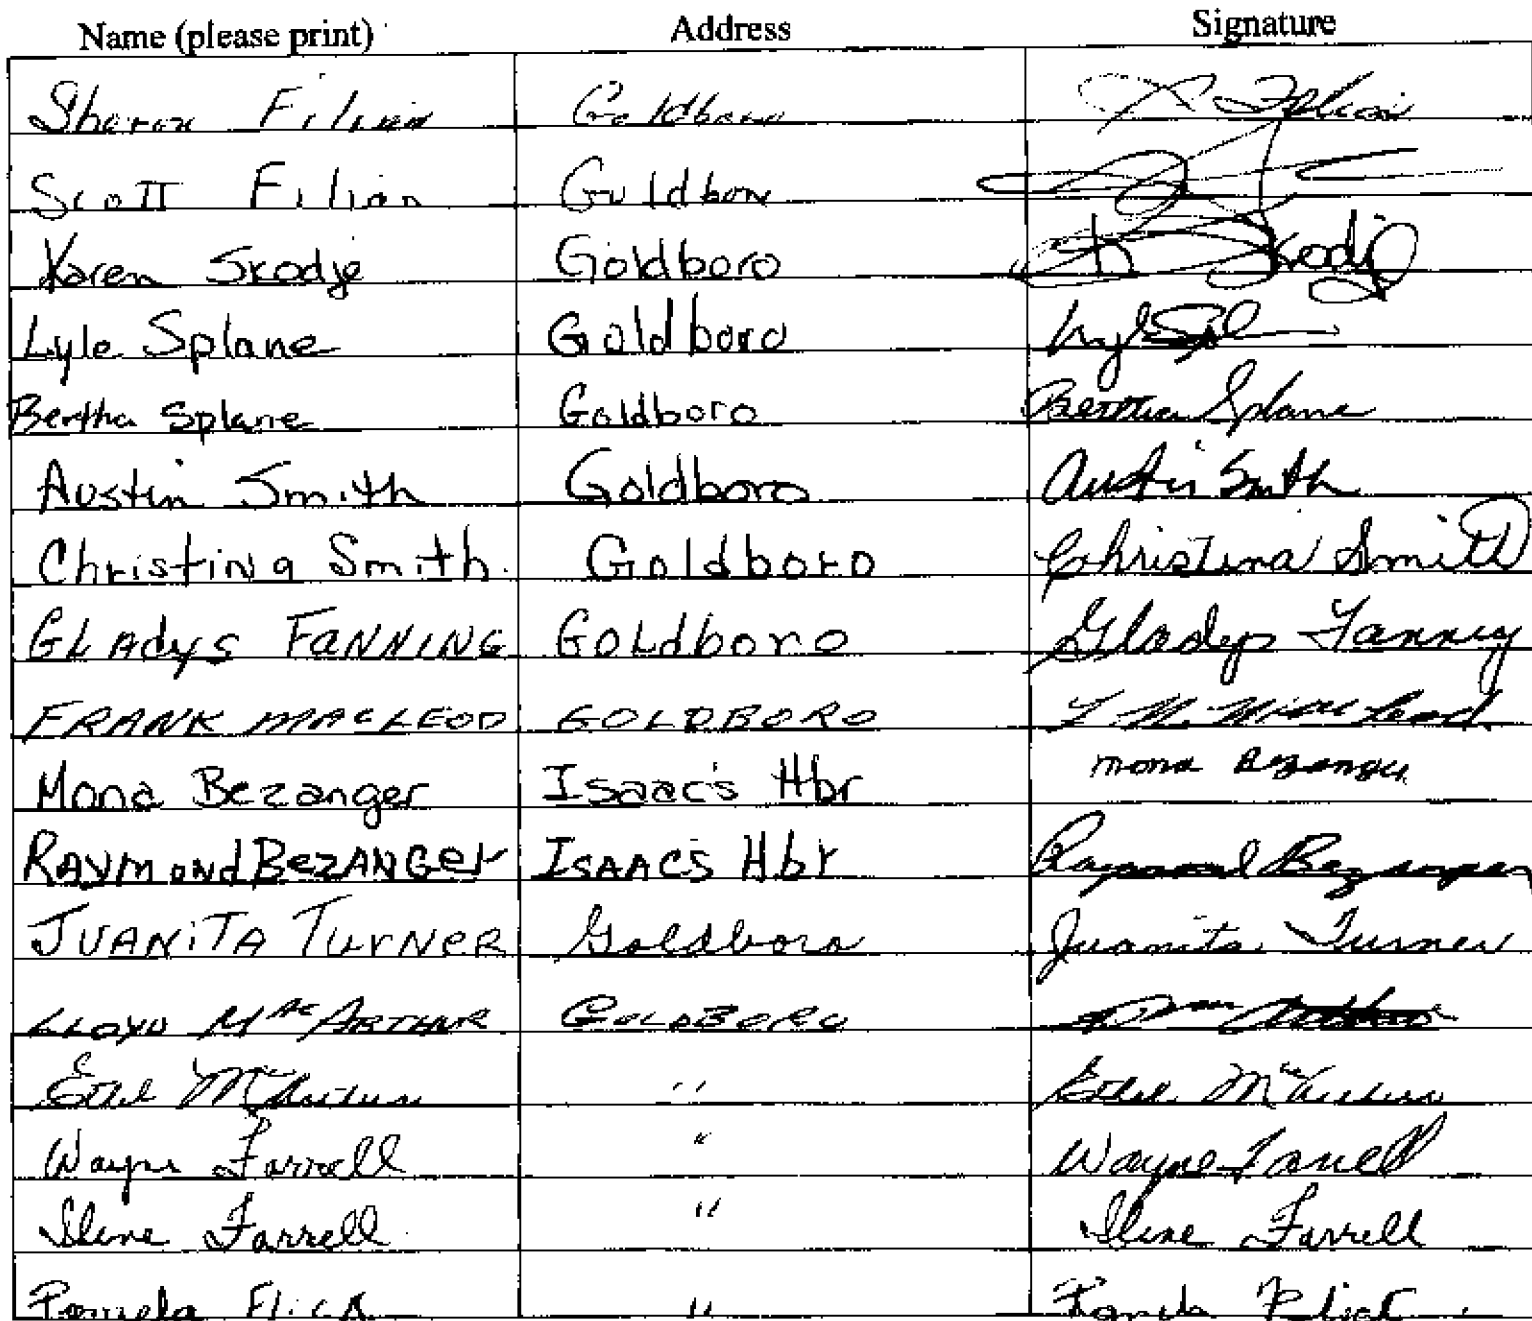 Name (please print) Address Signature
Sharon Filian Goldboro S Filian
Scott Filian Goldboro
Karen Skodje Goldboro K Skodje
Lyle Splane Goldboro Lyle Spl
Bertha Splane Goldboro Bertha Splane
Austin Smith Goldboro Austin Smith
Christina Smith. Goldboro Christina Smith
GLAdys FANNING GOLdboro Gladys Fanning
FRANK MACLEOD GOLDBORO F. M. MacLeod
Mona Bezanger Isaac's Hbr Mona Bezanger
RAYMOND BEZANGer ISAACS Hbr Raymond Bezanger
JUANiTA TurNeR Goldboro Juanita Turner
LLOYD MacARTHUR GOLDBORO MacArthur
Ethel McArthur " Ethel McArthur
Wayne Farrell " Wayne Farrell
Ilene Farrell " Ilene Farrell
Pamela "  Pamela